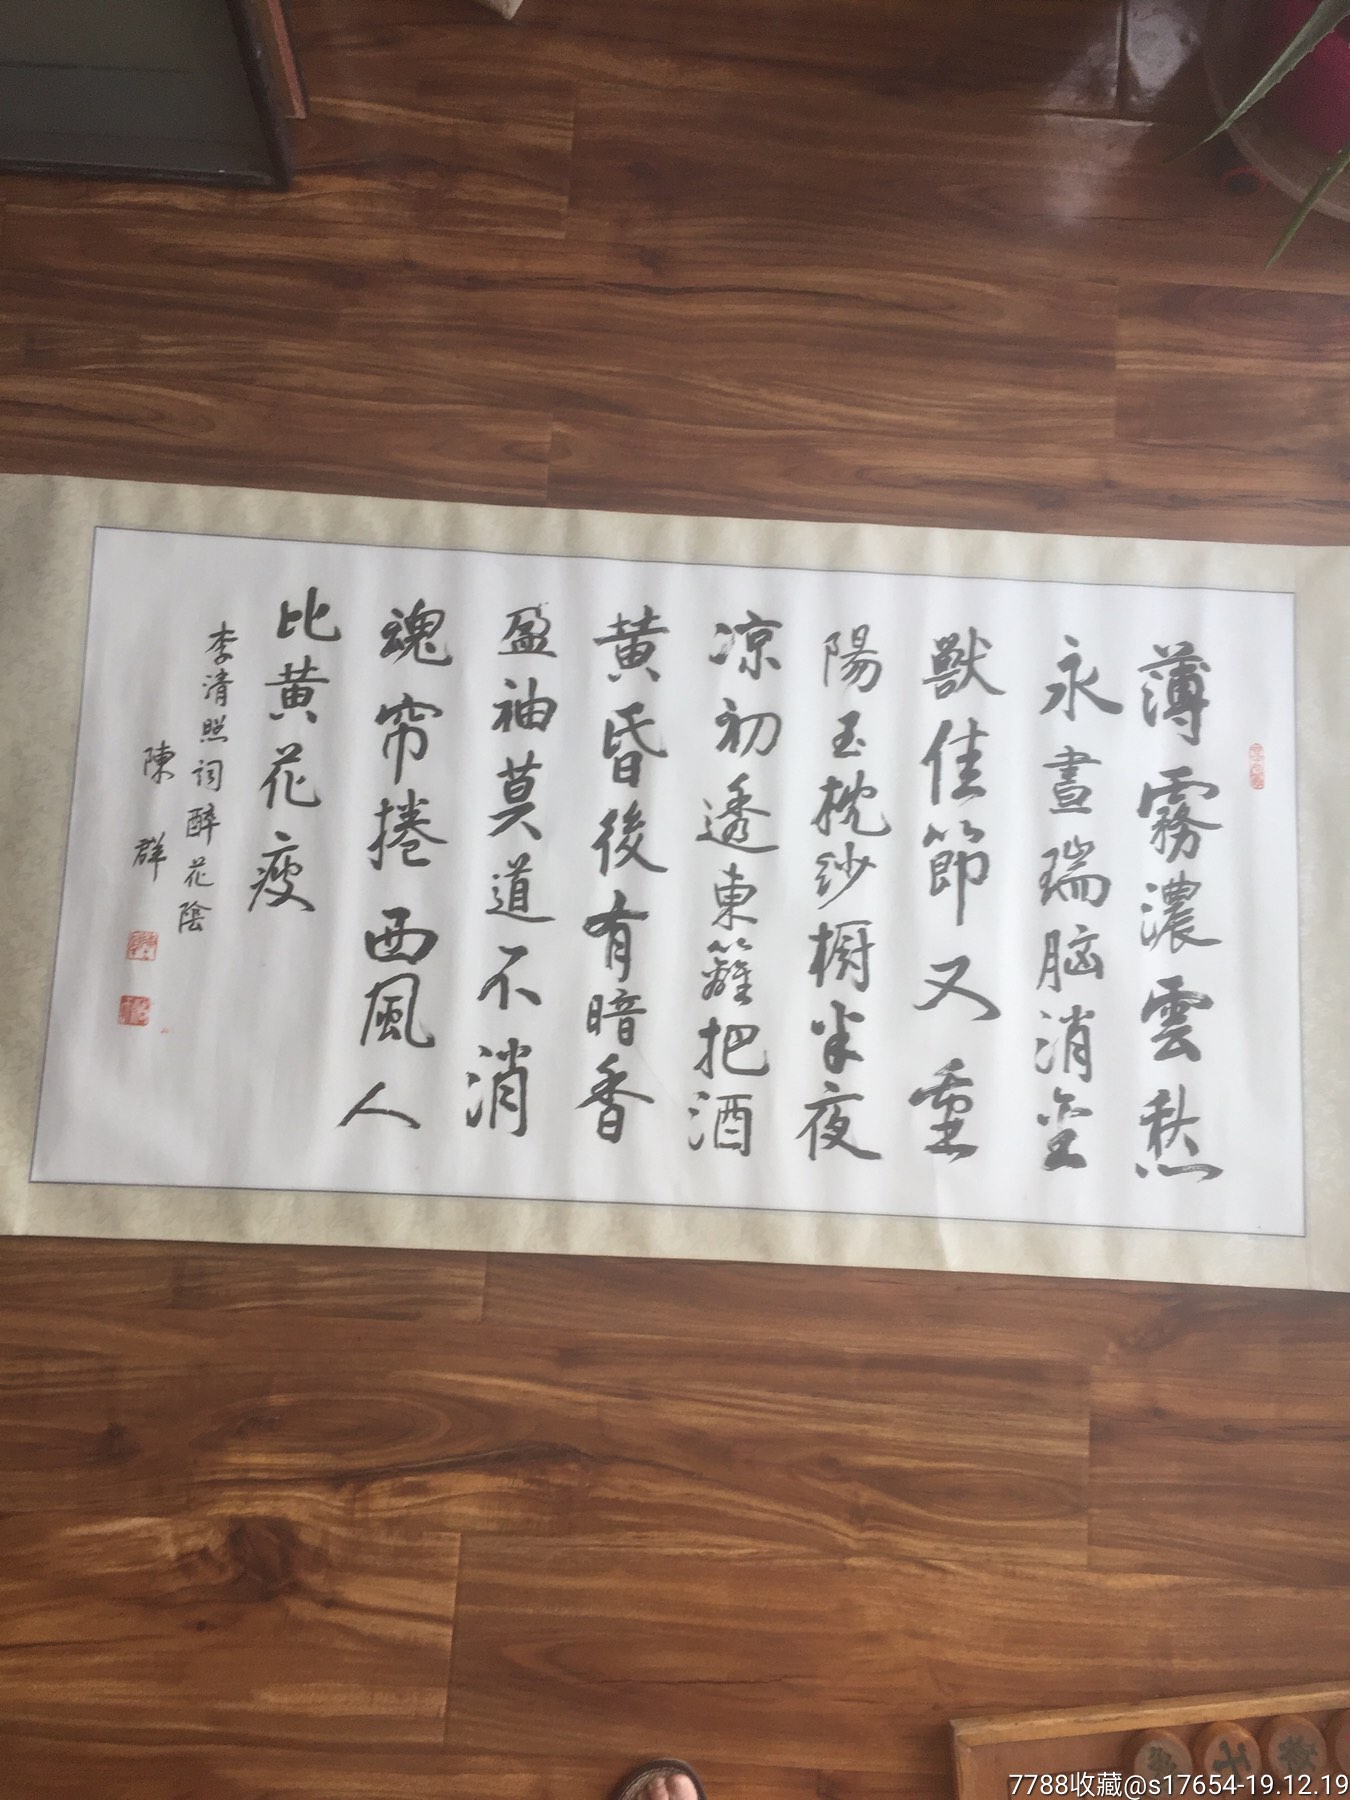 薄霧濃雲愁
永晝瑞脑消金
獸佳節又重
陽玉枕紗橱半夜
凉初透東籬把酒
黄昏後有暗香
盈袖莫道不消
魂帘捲西風人
比黄花瘦
李清照词醉花陰
陳群
7788收藏@s17654-19.12.19